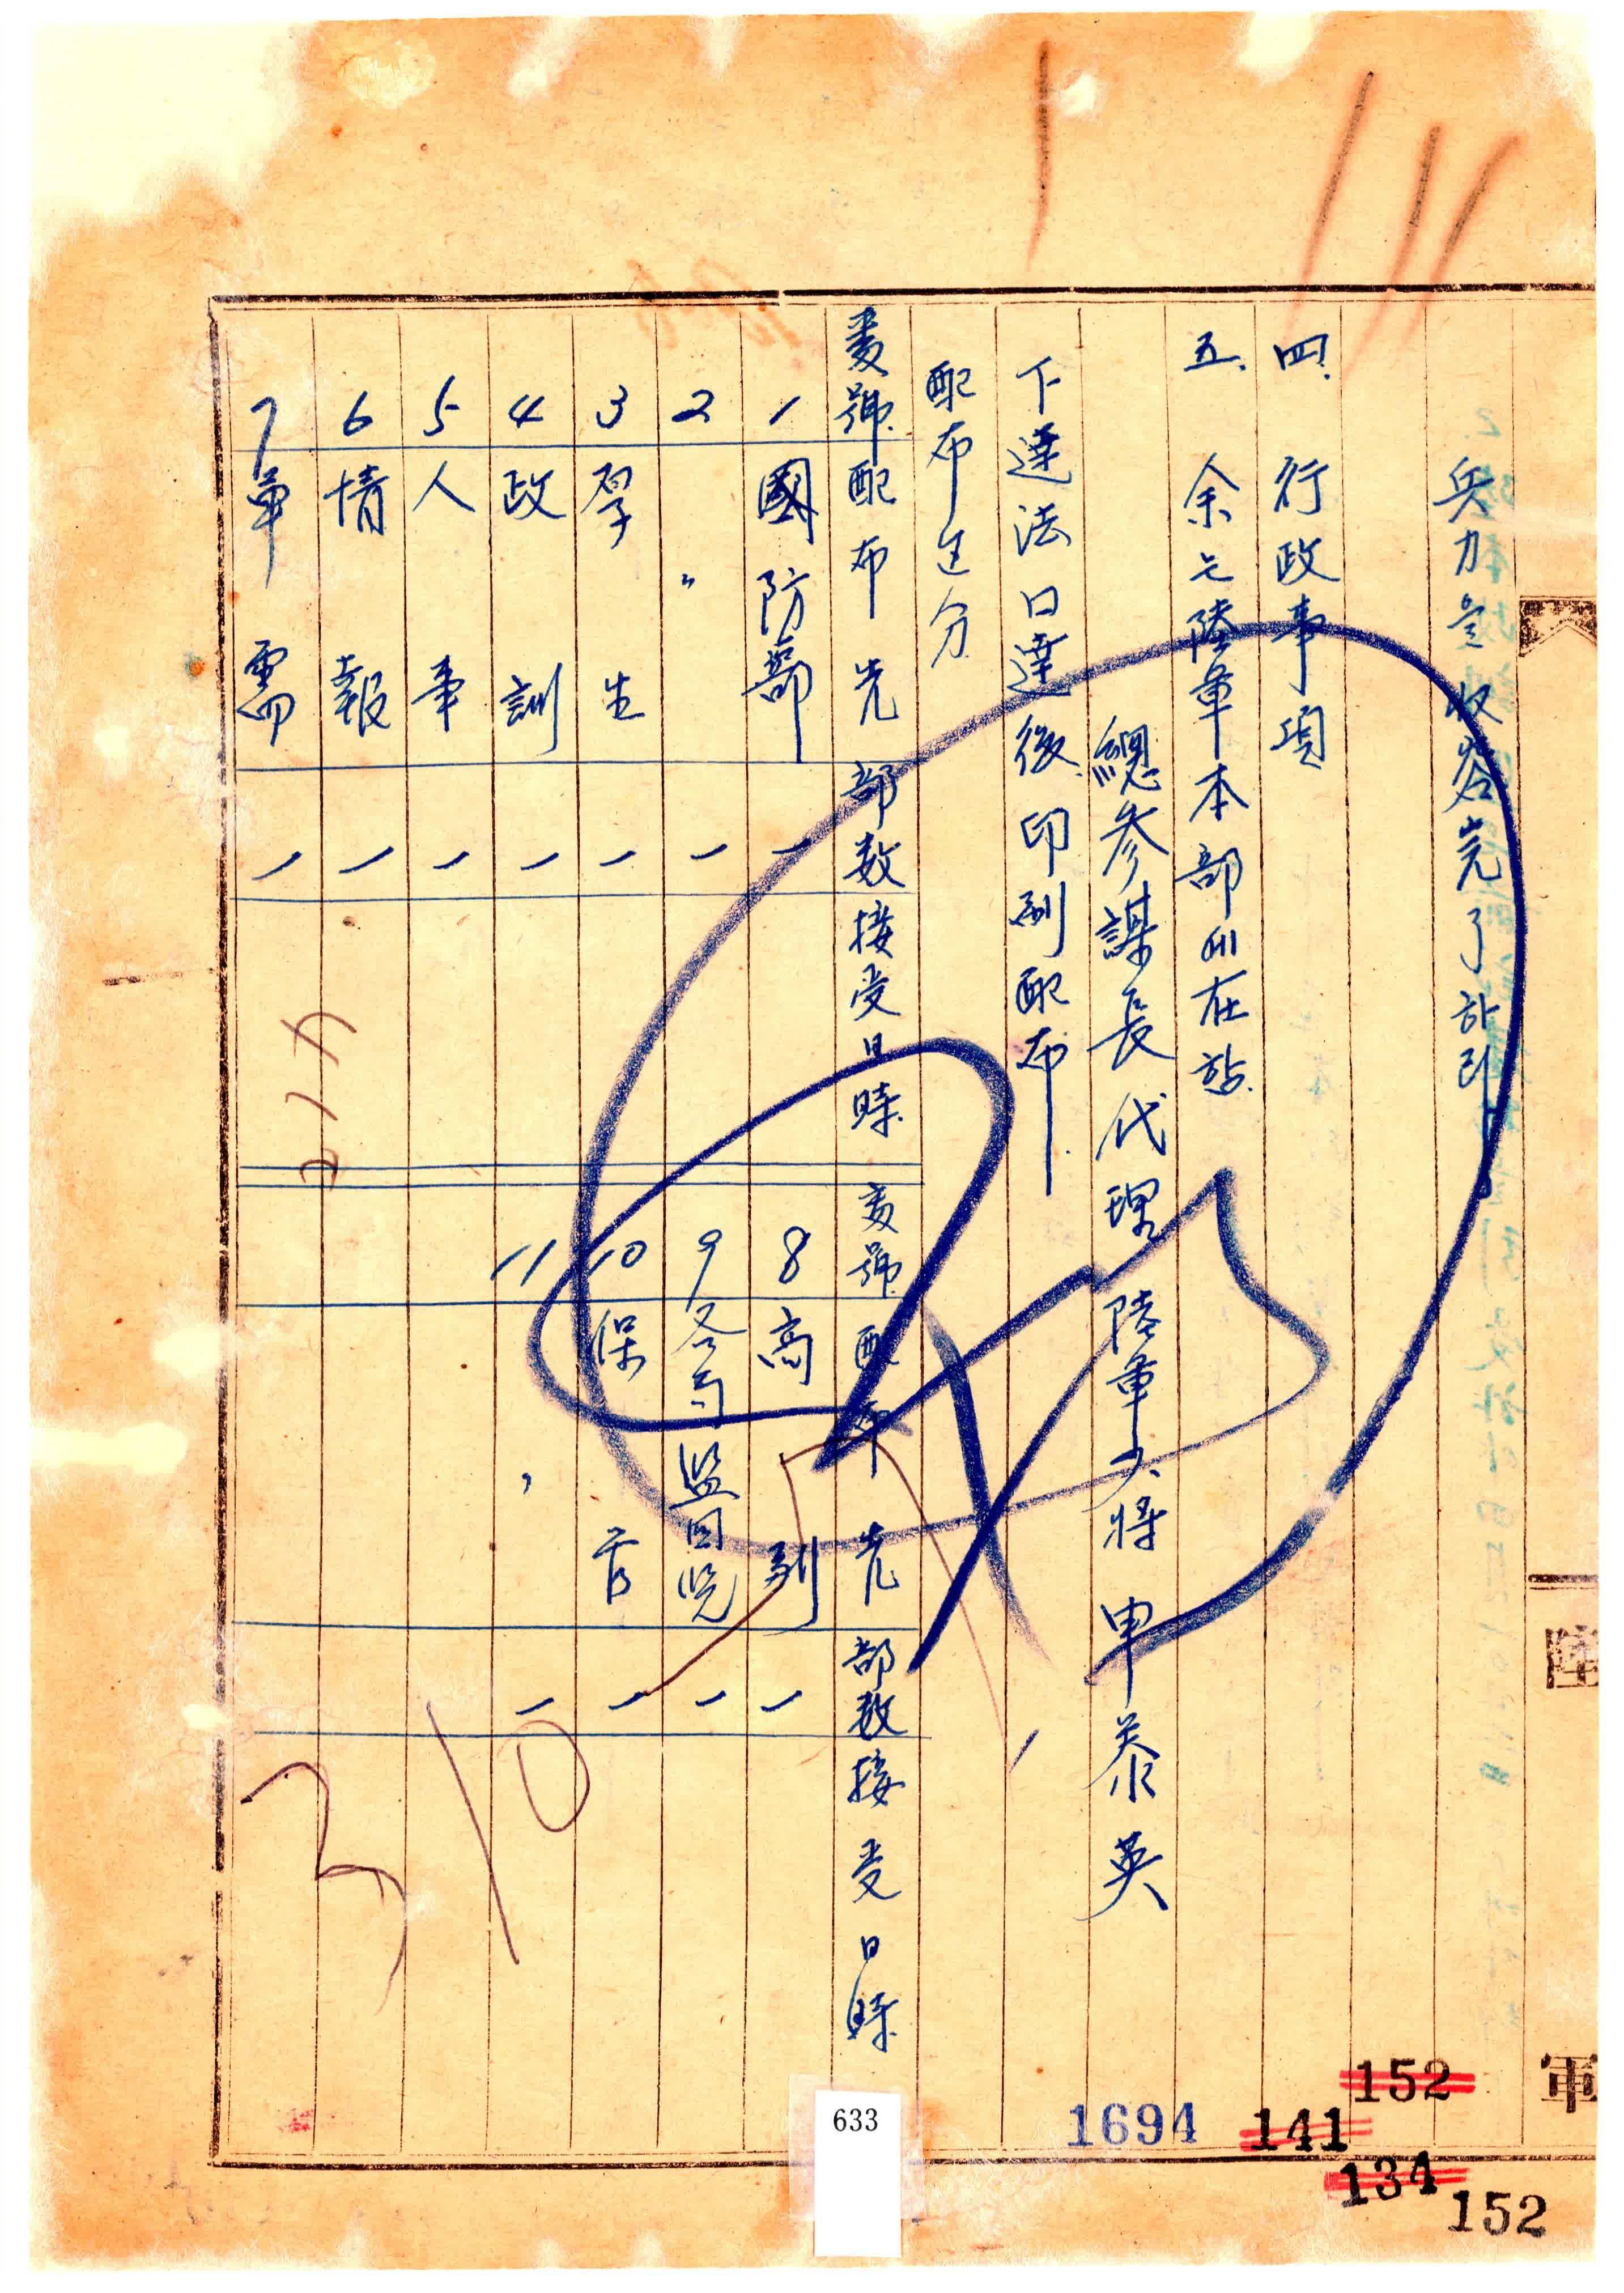 兵力을 收容 完了하라
四. 行政事項
五. 余는 陸軍本部에 在함.
總參謀長代理 陸軍少將 申泰英
下達法 口達後 印刷配布.
配布區分
番號 配布先 部数 接受日時 番號 配布先 部数 接受日時
1 國防部 一 8 高 列 一
2 〃 一 9 各 監 一
3 學生 一 10 保 官 一
4 政訓 一 11 〃 一
5 人事 一
6 情報 一
7 軍需 一
310
陸
軍
633
1694
152
141
134
152